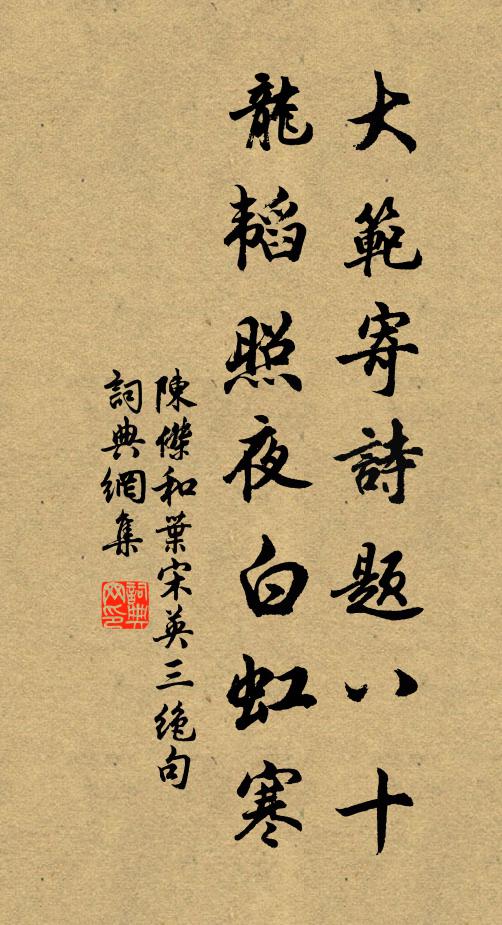 大範寄詩題八十
龍韜照夜白虹寒
陳傑和葉宋英三絕句
詞典網集
詞典
网印